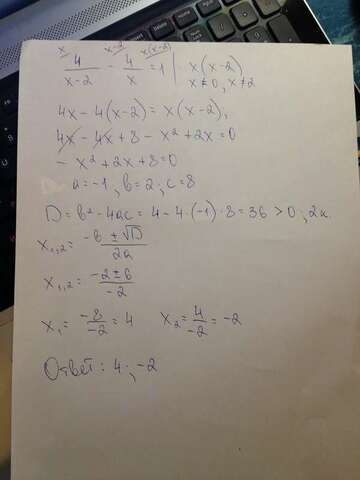 x x-2 x(x-2)
4/(x-2) - 4/x = 1 | x(x-2)
x ≠ 0, x ≠ 2
4x - 4(x-2) = x(x-2);
4x - 4x + 8 - x² + 2x = 0
- x² + 2x + 8 = 0
a = -1, b = 2; c = 8
D = b² - 4ac = 4 - 4·(-1)·8 = 36 > 0; 2к.
x₁,₂ = (-b ± √D)/2a
x₁,₂ = (-2 ± 6)/-2
x₁ = -8/-2 = 4 x₂ = 4/-2 = -2
Ответ: 4; -2